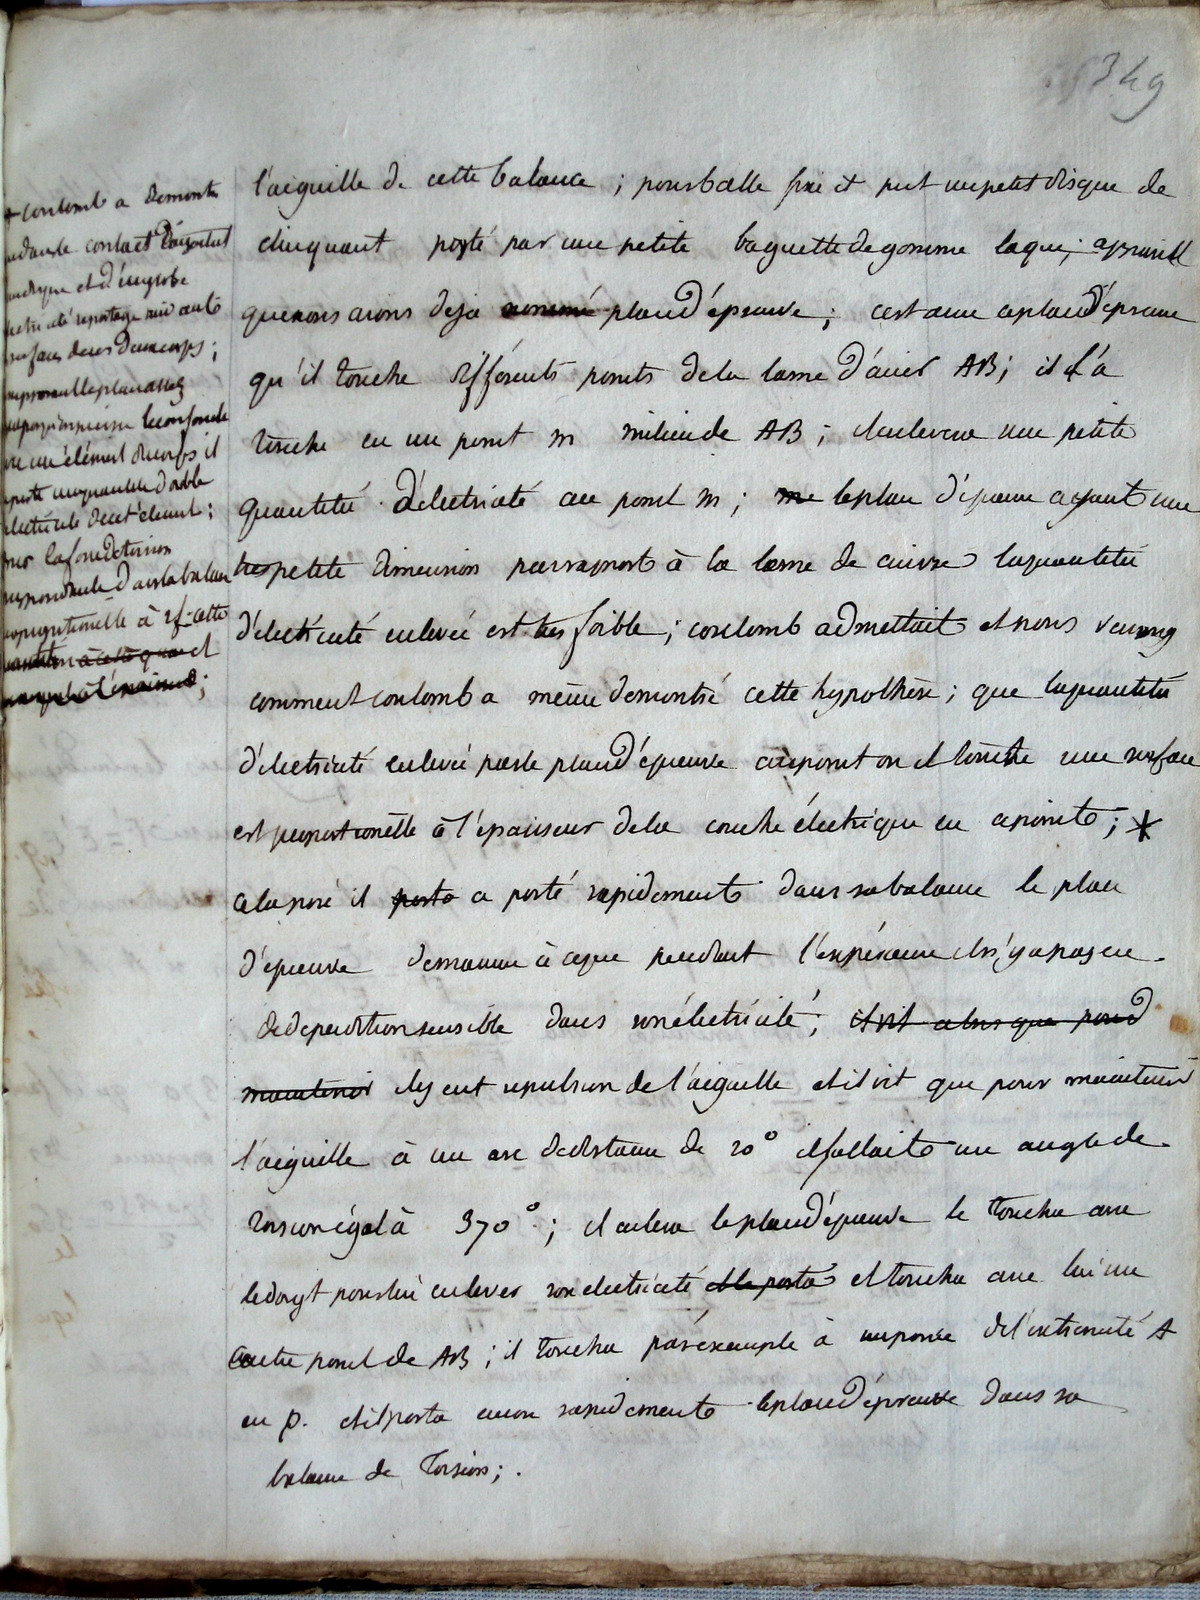 349
l'aiguille de cette balance ; pour balle fixe il prit un petit disque de
clinquant porté par une petite baguette de gomme laque; appareil
que nous avons deja nommé plan d'épreuve ; c'est avec ce plan d'épreuve
qu'il touche différents points de la lame d'acier AB ; il l'a
touche en un point m milieu de AB ; il enleva une petite
quantité d'électricité au point m ; le plan d'épreuve ayant une
tres petite dimension par rapport à la lame de cuivre la quantité
d'électricité enlevée est tres foible ; coulomb admettait et nous verrons
comment coulomb a même demontré cette hypothèse ; que la quantité
d'électricité enlevée par le plan d'épreuve au point ou il touche une surface
est proportionelle à l'épaisseur de la couche électrique en ce point ; *
cela posé il porta a porté rapidement dans sa balance le plan
d'épreuve de maniere à ce que pendant l'expérience il n'y a pas eu
de deperdition sensible dans son électricité ; il vit alors que pour
maintenir il y eut repulsion de l'aiguille et il vit que pour maintenir
l'aiguille à un arc de distance de 20° il fallait un angle de
torsion égal à 370° ; il enleva le plan d'épreuve le toucha avec
le doigt pour lui enlever son electricité et toucha avec lui un
autre point de AB ; il toucha par exemple à un pouce de l'extremité A
en p. et il porta encore rapidement le plan d'épreuve dans sa
balance de torsion ; .
+ coulomb a demontré
que dans le contact
d'un disque et d'un globe
surface de ces deux corps ;
le confonde
avec un élément du corps il
emporte une quantité double
electricité de cet élément ;
la force de torsion
dans la balance
proportionelle à cette